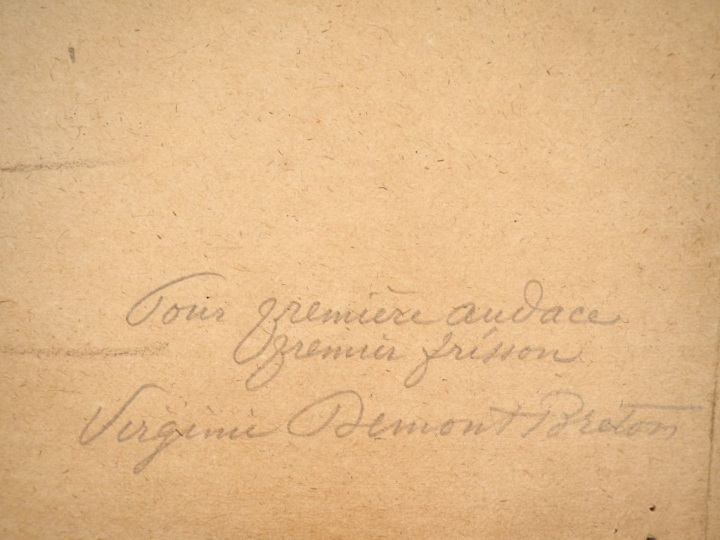 Pour première audace
premier frisson
Virginie Demont-Breton